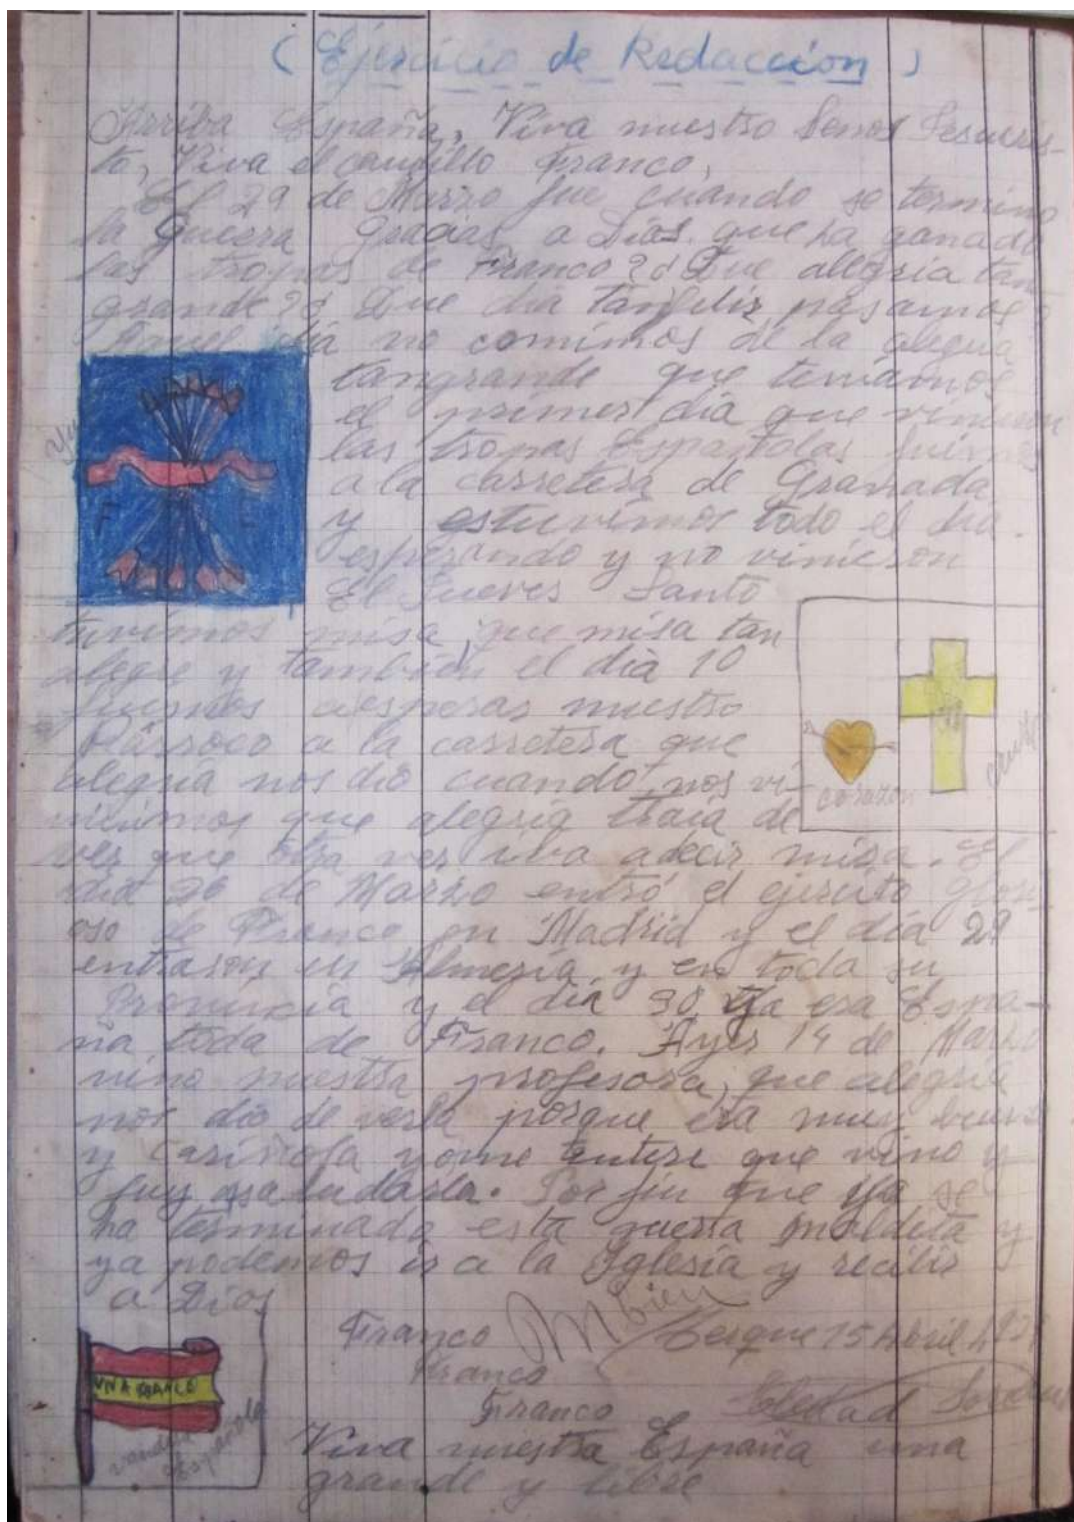 ( Ejercicio de Redaccion )
Arriba España, Viva nuestro Senor Jesucris-
to, Viva el caudillo Franco,
El 29 de Marzo fue cuando se termino
la guerra Gracias a Dios que ha ganado
las tropas de Franco?¿Que alegria tan
grande?¿ Que dia tan feliz pasamos?
Aquel dia no comimos de la alegria
tangrande que teniamos
el primer dia que vinieron
las tropas Españolas fuimos
a la carretera de Granada
y estuvimos todo el dia
esperando y no vinieron
El Jueves Santo
tuvimos misa, que misa tan
alegre y tambien el dia 10
fuimos aesperar nuestro
Párroco a la carretera que
alegria nos dio cuando nos vi-
nimos que alegria traia de
ver que otra ves iva adecir misa. El
dia 28 de Marzo entró el ejercito glori-
oso de Franco en Madrid y el dia 29
entraron en Almeria, y en toda su
Provincia y el dia 30 ya era Espa-
ña toda de Franco. Ayer 14 de Marzo
vino nuestra profesora, que alegria
nos dio de verla porque era muy buena
y cariñosa yome entere que vino y
fuy asaludarla. Por fin que ya se
ha terminado esta guerra maldita y
ya podemos ir a la Iglesia y recibir
a Dios
Y
F
E
corazon
cruz
VIVA FRANCO
vandera
Española
Franco
Franco
Franco
M bien
15 Abril
Soledad
Viva nuestra España una
grande y libre